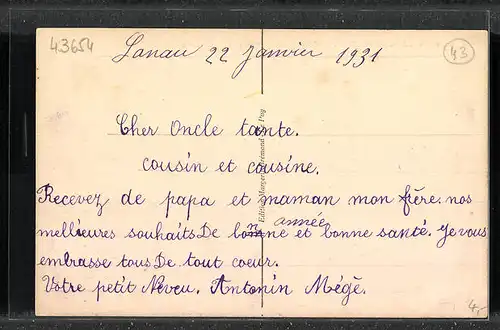 43654
43
Lanau 22 Janvier 1931
Cher Oncle tante.
cousin et cousine.
Recevez de papa et maman mon frère. nos
année
meilleures souhaits De bonne et bonne santé. Je vous
embrasse tous De tout coeur.
Votre petit Neveu. Antonin Mége.
4,-